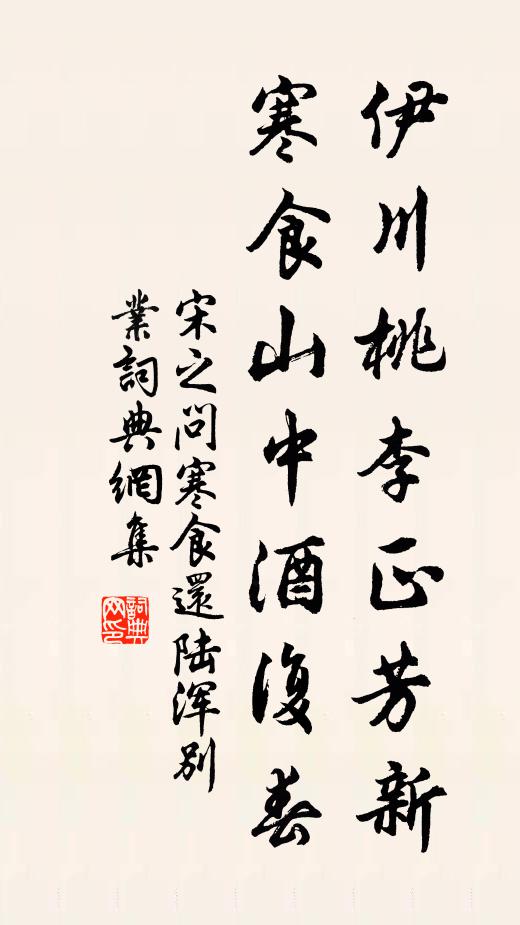 伊川桃李正芳新
寒食山中酒復春
宋之问寒食還陆浑别
業詞典網集
詞典
网印